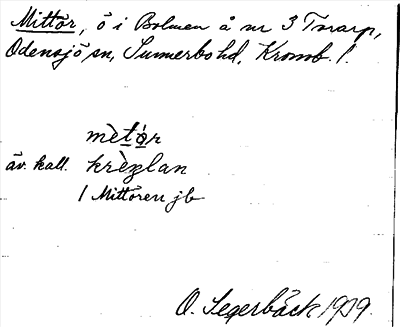 Mittör, ö i Bolmen å nr 3 Torarp,
Odensjö sn, Sunnerbo hd, Kronob. l.
mètö́r
äv. kall. krèplan
1 Mittören jb
O. Segerbäck 1919.